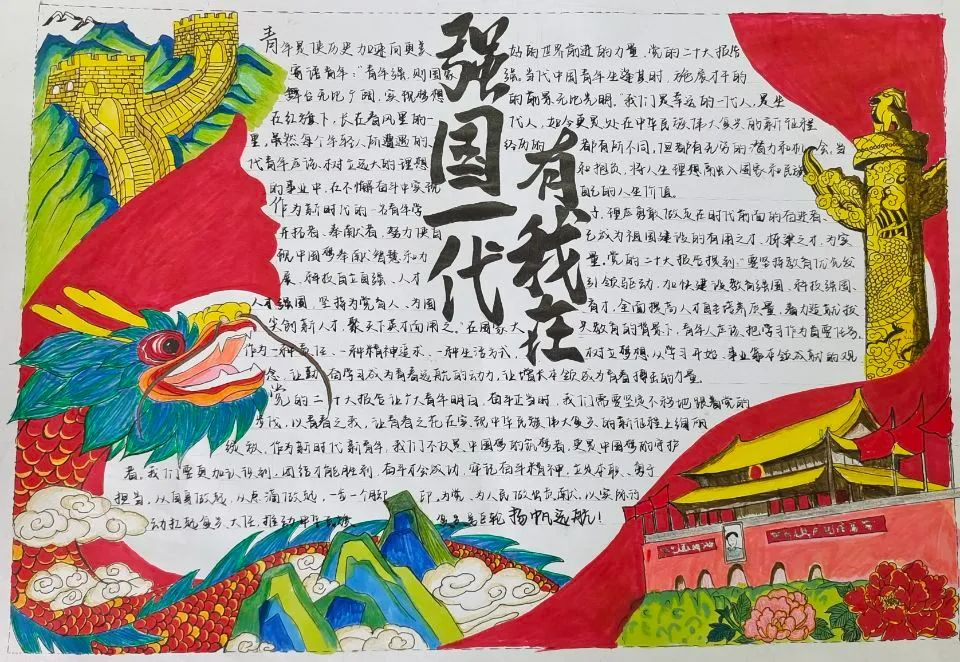 强国一代
有我在
青年是使历史加速向更美好的世界前进的力量，党的二十大报告
寄语青年："青年强，则国家强。当代中国青年生逢其时，施展才干的
舞台无比广阔，实现梦想的前景无比光明。"我们是幸运的一代人，是生
在红旗下，长在春风里的一代人，如今更是处在中华民族伟大复兴的新征程
里。虽然每个年轻人所遭遇的、经历的都有所不同，但都有无穷的潜力和机会。当
代青年应该树立远大的理想和抱负，将人生理想融入国家和民族
的事业中，在不懈奋斗中实现自己的人生价值。
作为新时代的一名青年学子，理应勇敢做走在时代前面的奋进者、
开拓者、奉献者，努力使自己成为祖国建设的有用之才、栋梁之才，为实
现中国梦奉献智慧和力量。党的二十大报告提到："要坚持教育优先发
展、科技自立自强、人才引领驱动，加快建设教育强国、科技强国、
人才强国，坚持为党育人、为国育才，全面提高人才自主培养质量，着力造就拔
尖创新人才，聚天下英才而用之。"在国家大力教育的背景下，青年人应该把学习作为首要任务，
作为一种责任、一种精神追求、一种生活方式，树立梦想从学习开始、事业靠本领成就的观
念，让勤奋学习成为青春远航的动力，让增长本领成为青春搏击的力量。
党的二十大报告让广大青年明白，奋斗正当时，我们需要坚定不移地跟着党的
步伐，以青春之我，让青春之花在实现中华民族伟大复兴的新征程上绚丽
绽放。作为新时代新青年，我们不仅是中国梦的筑梦者，更是中国梦的守护
者。我们要更加认识到，团结才能胜利，奋斗才会成功，牢记奋斗精神，立足本职、勇于
担当，从自身做起，从点滴做起，一步一个脚印，为党、为人民做出贡献，以实际行
动扛起复兴大任，推动中华民族复兴号巨轮扬帆远航！